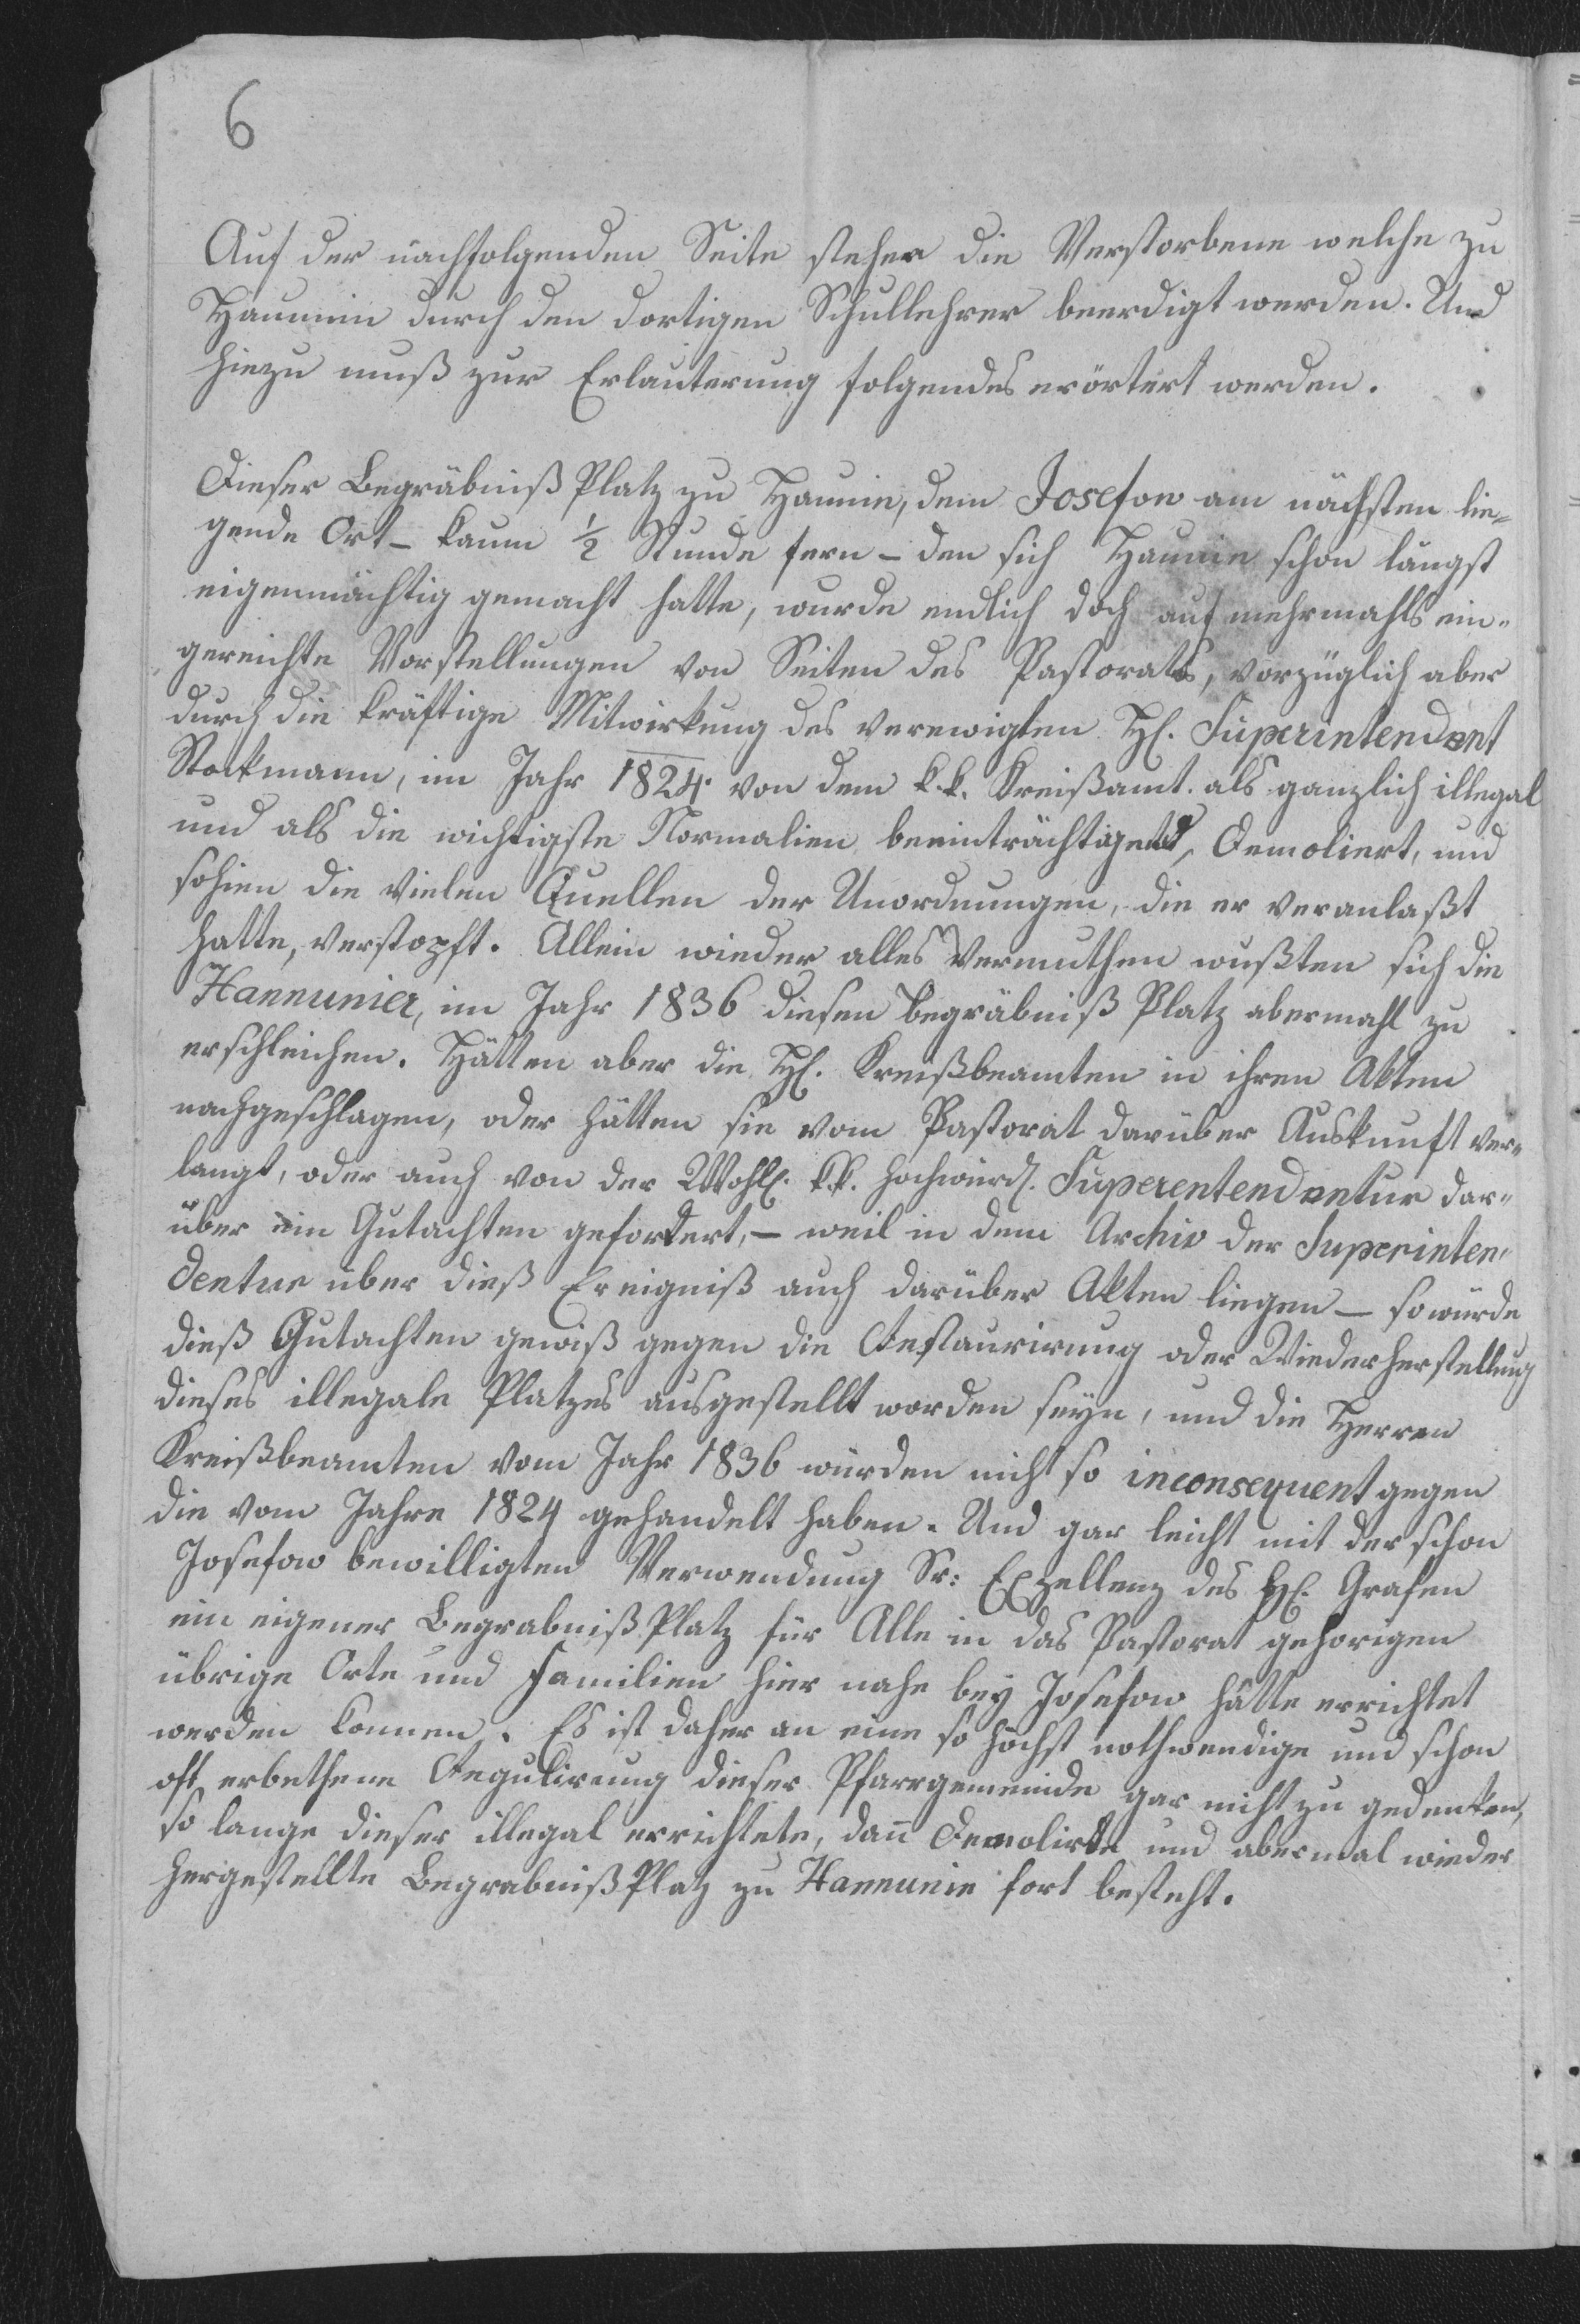 6
Auf der nachfolgenden Seite stehen die Verstorbene welche zu
Haunnin durch den dortigen Schullehrer beerdigt werden. Und
hiezu muß zur Erlauterung folgendes erörtert werden.
Dieser Begräbniß Platz zu Haunin, dem Josefow am nächsten lie=
gende Ort – kaum ½ Stunde fern – den sich Haunin schon längst
eigenmächtig gemacht hatte, wurde endlich doch auf mehrmahls ein=
gereichte Vorstellungen von Seiten des Pastorats, vorzüglich aber
durch die kräftige Mitwirkung des verewigten H. Superintendent
Stockmann, im Jahr 1824. von dem k.k. Kreißamt. als ganzlich illegal
und als die wichtigste Normalien beeinträchtigend, Demoliert, und
sohin die vielen Quellen der Unordnungen, die er veranlaßt
hatte, verstopft. Allein wieder alles Vermuthen wußten sich die
Hannunier, im Jahr 1836 diesen Begräbniß Platz abermahl zu
erschleichen. Hätten aber die H. Kreißbeamten in ihren Akten
nachgeschlagen, oder hätten sie vom Pastorat darüber Auskunft ver=
langt, oder auch von der Wohll. k.k. hochwürd. Superentendentur dar=
über ein Gutachten gefordert, – weil in dem Archiv der Superinten=
dentur über dieß Ereigniß auch darüber Akten liegen – so würde
dieß Gutachten gewiß gegen die Restaurirung oder Wiederherstellung
dieses illegale Platzes ausgestellt worden seyn, und die Herren
Kreißbeamten vom Jahr 1836 würden nicht so inconsequent gegen
die vom Jahre 1824 gehandelt haben. Und gar leicht mit der schon
Josefow bewilligten Verwendung Sr: Exzellenz des H. Grafen
ein eigener Begrabniß Platz für Alle in das Pastorat gehorigen
übrige Orte und Familien hier nahe bey Josefow hätte errichtet
werden konnen. Es ist daher an eine so höchst nothwendige und schon
oft erbethene Regulirung dieser Pfarrgemeinde gar nicht zu gedenken,
so lange dieser illegal errichtete, dann Demolirte und abermal wieder
hergestellte Begrabniß Platz zu Hannunin fort besteht.